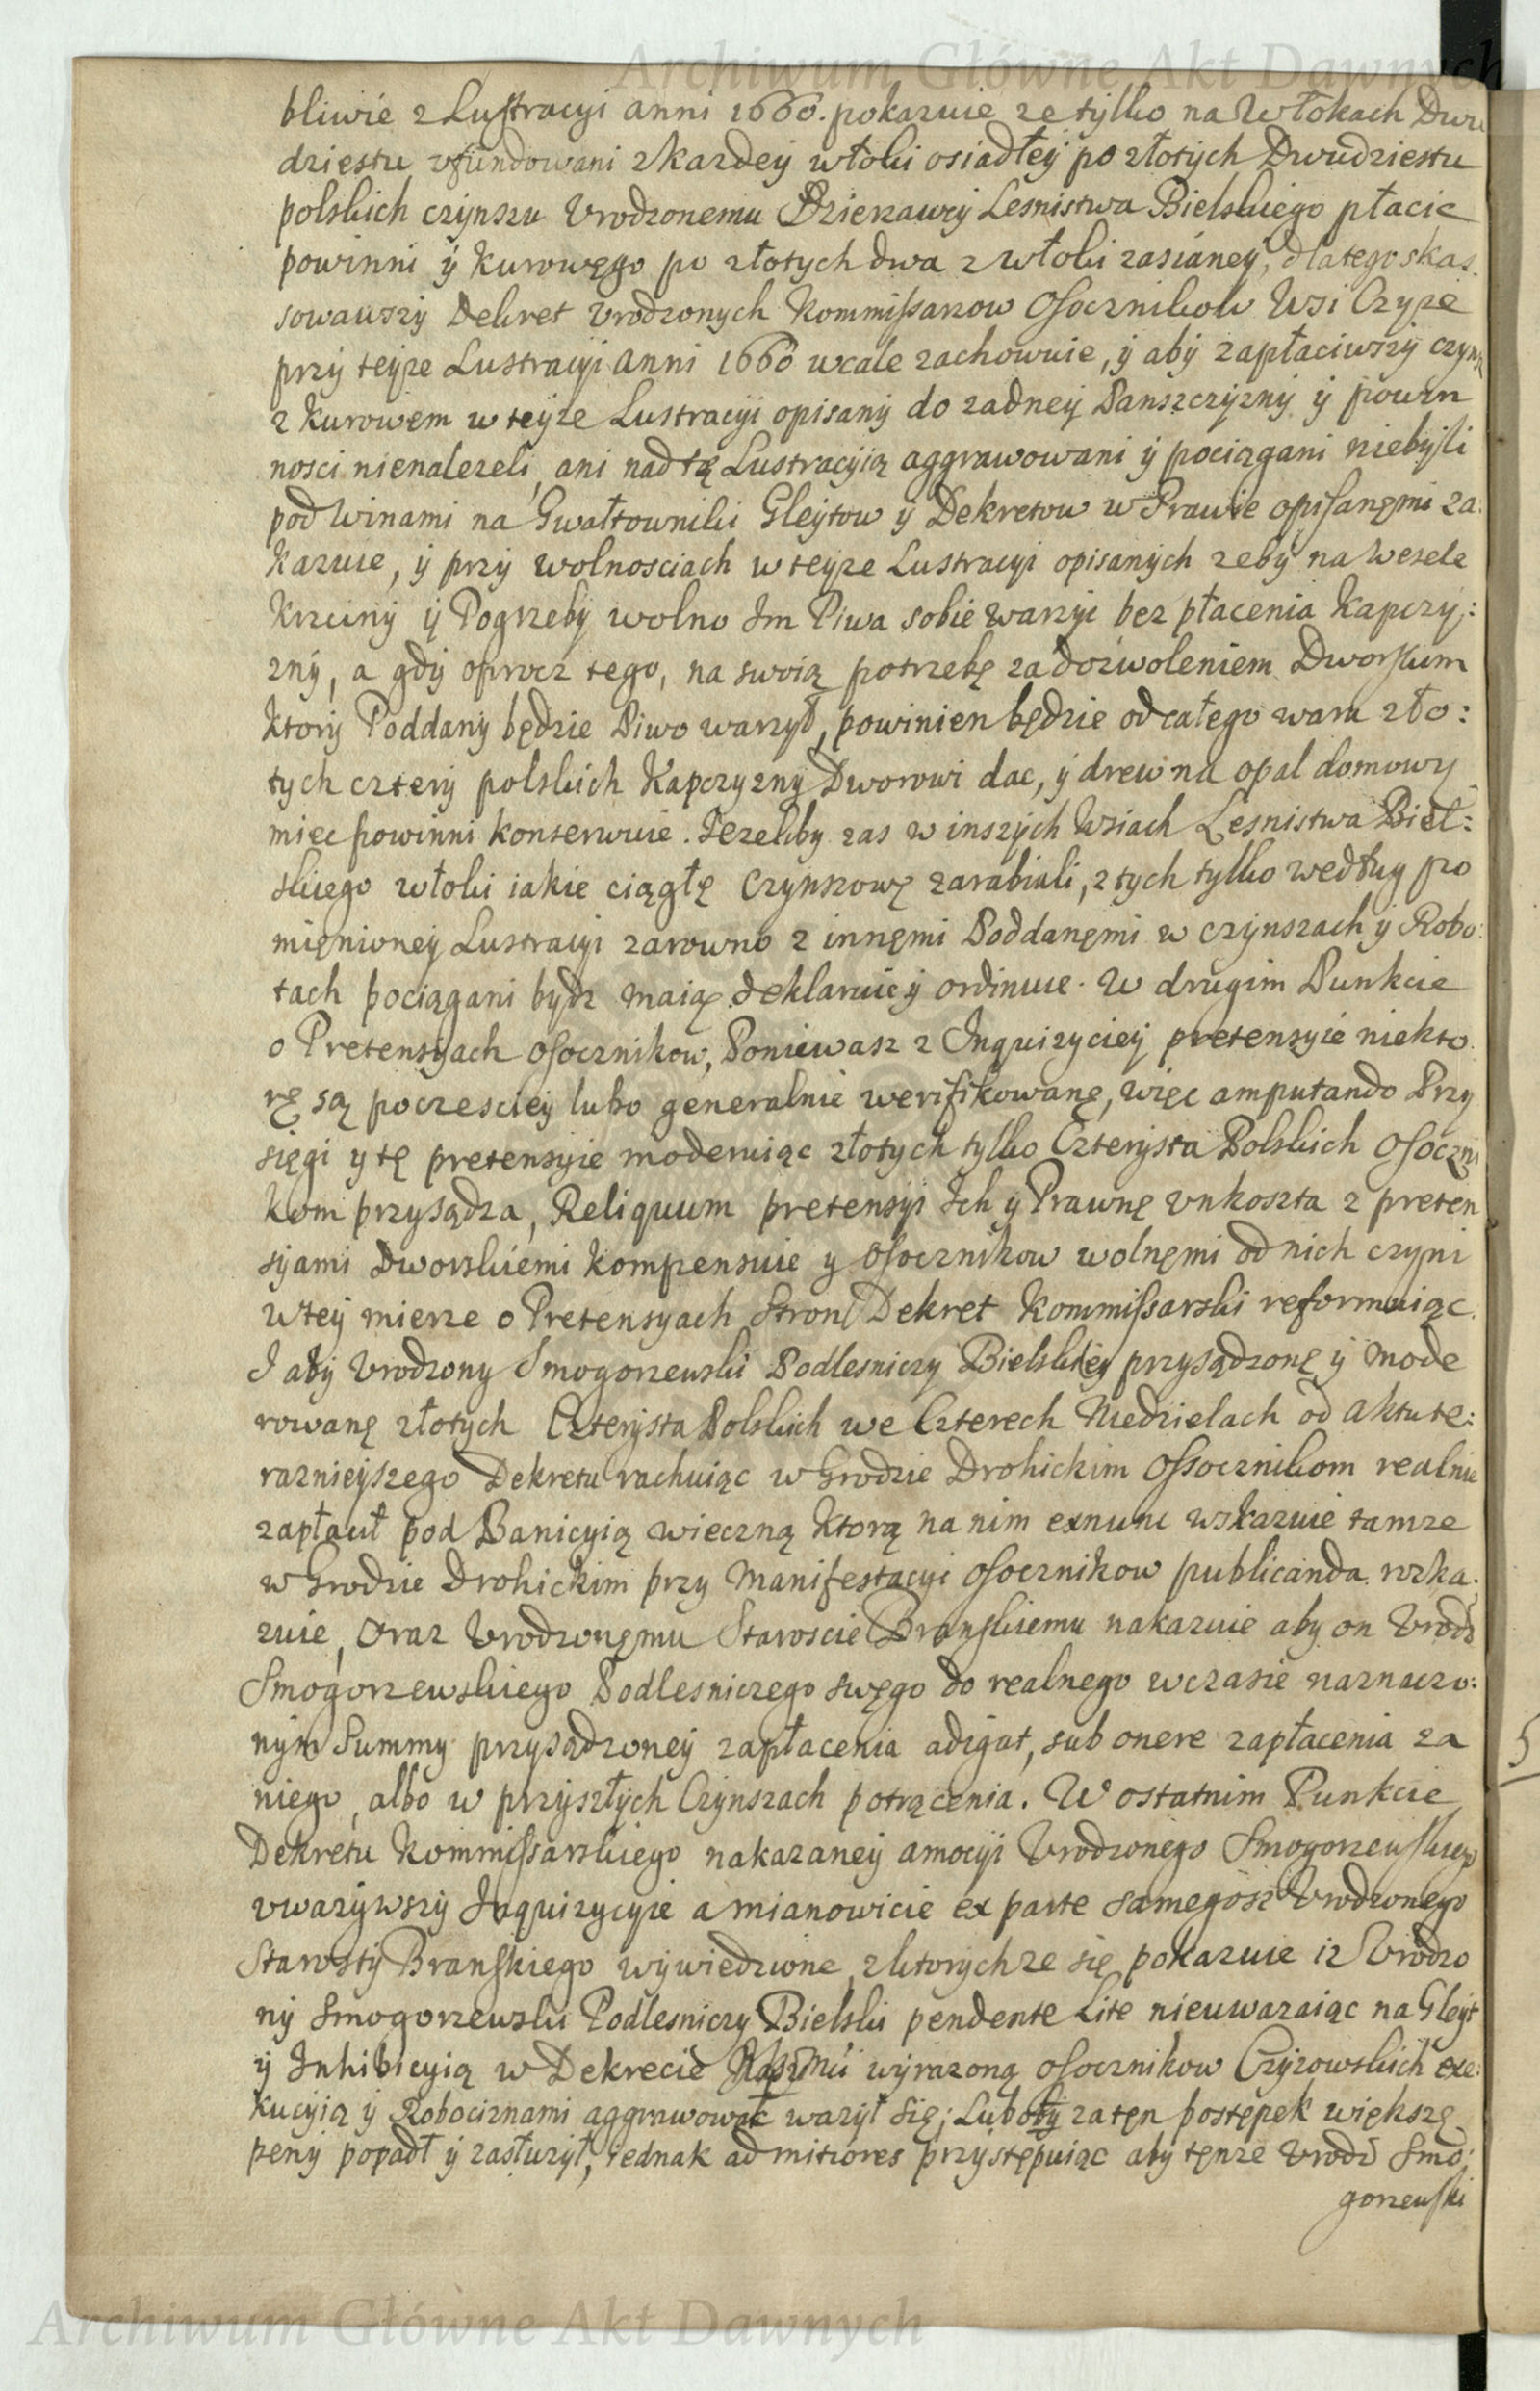 Archiwum Główne Akt Dawnych
bliwie z Lustracyi anni 1660. pokazuie ze tylko na Włokach Dwu
dziestu vfundowani z kazdey włoki osiadłey po złotych Dwudziestu
polskich czynszu Vrodzonemu Dzierzawcy Lesnistwa Bielskiego płacic
powinni y kurowęgo po złotych dwa z włoki zasianey, dlatego skas
sowawszy Dekret Vrodzonych Kommissarzow Osocznikow Wsi Czyze
przy teyze Lustracyi anni 1660 wcale zachowuie, y aby zapłaciwszy czynsz
z kurowem w teyze Lustracyi opisany do zadney Panszczyzny y powin
nosci nienalezeli, ani nad tę Lustracyią aggrawowani y pociągani niebyli
pod winami na Gwałtowniki Gleytow y Dekretow w Prawie opisanęmi za:
kazuie, y przy wolnosciach w teyze Lustracyi opisanych zeby na wesele
Krzciny y Pogrzeby wolno Im Piwa sobie warzyc bez płacenia Kapczy:
zny, a gdy oprocz tego, na swoią potrzebę za dozwoleniem Dworskim
ktory Poddany będzie Piwo warzył, powinien będzie od całego waru zło:
tych cztery polskich Kapczyzny Dworowi dac, y drew na opal domowy
miec powinni konserwuie. Jezeliby zas w inszych Wsiach Lesnistwa Biel:
skiego włoki iakie ciągłę czynszowę zarabiali, z tych tylko według po
mięnioney Lustracyi zarowno z innęmi Poddanęmi w czynszach y Robo:
tach pociągani bydz maią deklaruie y ordinuie. W drugim Punkcie
o Pretensyach osocznikow, Poniewasz z Inquizyciey pretensyie niekto
rę są poczesciey lubo generalnie werifikowanę, więc amputando Przy
sięgi y tę pretensyie moderuiąc złotych tylko Czterysta Polskich Osoczni
kom przysądza, Reliquum pretensyi Ich y Prawnę vnkoszta z preten
syami Dworskiemi kompensuie y osocznikow wolnęmi od nich czyni
w tey mierze o Pretensyach Stron Dekret Kommissarski reformuiąc.
I aby Vrodzony Smogorzewski Podlesniczy Bielskiey przysądzonę y mode
rowanę złotych Czterysta Polskich we Czterech Niedzielach od aktu te:
raznieyszego Dekretu rachuiąc w Grodzie Drohickim Ossocznikom realnie
zapłacił pod Banicyią wieczną ktorą na nim exnunc wskazuie tamze
w Grodzie Drohickim przy Manifestacyi osocznikow publicanda rozka:
zuie, oraz Vrodzonęmu Staroscie Branskiemu nakazuie aby on Vrodz
Smogorzewskiego Podlesniczego swęgo do realnego wczasie naznaczo:
nym Summy przysądzoney zapłacenia adigat, sub onere zapłacenia za
niego, albo w przyszłych Czynszach potrącenia. W ostatnim Punkcie
Dekretu Kommissarskiego nakazaney amocyi Vrodzonego Smogorzewskiego
vwazywszy Inquizycyie a mianowicie ex parte samegosz Vrodzonego
Starosty Branskiego wywiedzione, z ktorychze się pokazuie iz Vrodzo
ny Smogorzewski Podlesniczy Bielski pendente Lite nieuwazaiąc na Gleyt
y Inhibicyią w Dekrecie wyrazoną osocznikow Czyzowskich exe:
kucyią y Robociznami aggrawowac wazył się; Luboby za tęn postępek większę
peny popadł y zasłuzył, iednak ad mitiores przystępuiąc aby tęnze Vrodz Smo:
gorzewski
Archiwum Główne Akt Dawnych